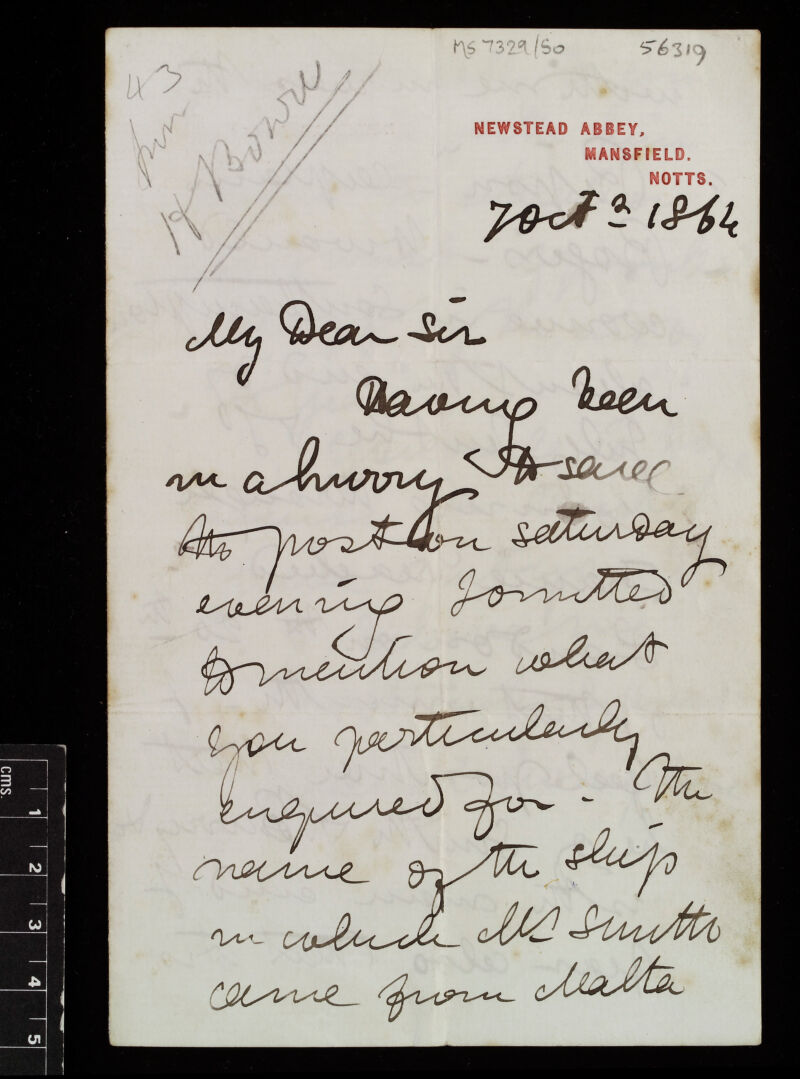 MS 7329/50 56319
43
H Bowre
NEWSTEAD ABBEY,
MANSFIELD.
NOTTS.
7 Oct 1864
My Dear Sir
Having been
in a hurry to save
the post on saturday
evening I omitted
to mention what
you particularly
enquired for - The
name of the ship
in which Mr Smith
came from Malta
cms.
1
2
3
4
5